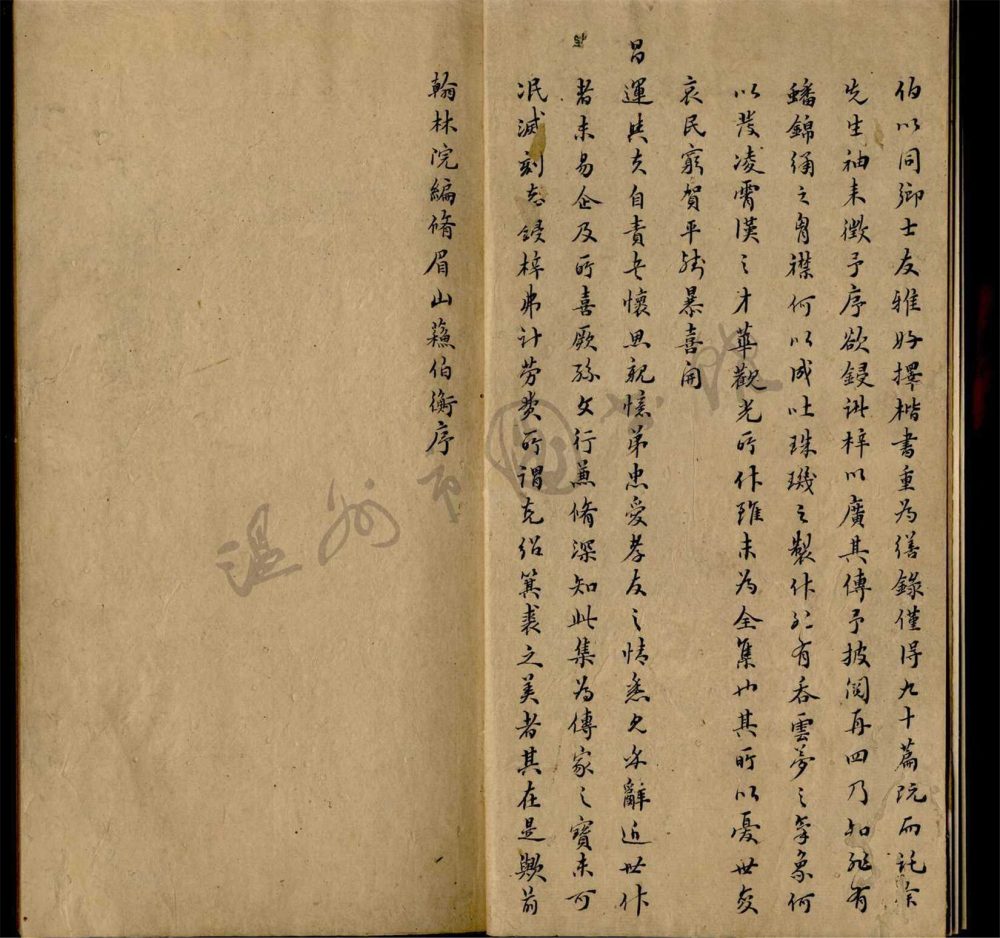 伯以同鄉士友雅好擇楷書重為繕錄僅得九十篇既而託余
先生袖来徵予序欲鋟諸梓以廣其傳予披閱再四乃知非有
蟠錦綉之胷襟何以成吐珠璣之製作非有吞雲夢之氣象何
以發凌霄漢之才華觀光所作雖未為全集也其所以憂世
哀民窮賀平暴喜開
昌
運與夫自責与懷思親憶弟忠愛孝友之情悉見乎辭近世作
者未易企及所喜厥孫文行兼脩深知此集為傳家之寶未可
泯滅刻志鋟梓弗計勞費所謂克紹箕裘之美者其在是歟前
翰林院編脩眉山蘇伯衡序
温州市图书馆